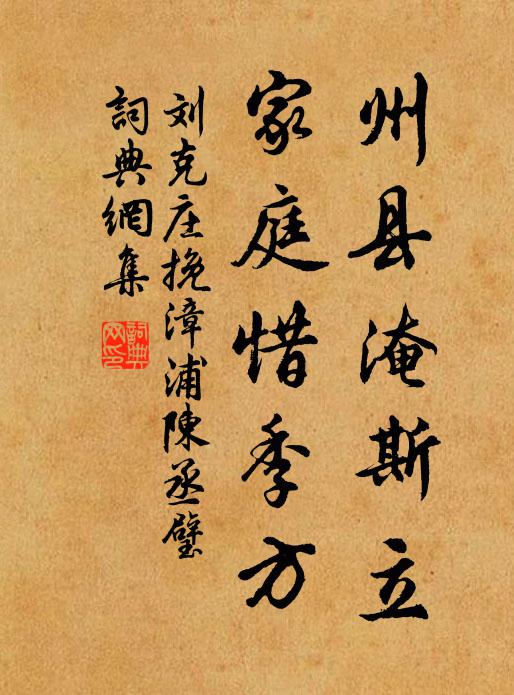 州县淹斯立
家庭惜季方
刘克庄挽漳浦陳丞璧
詞典網集
詞典网印